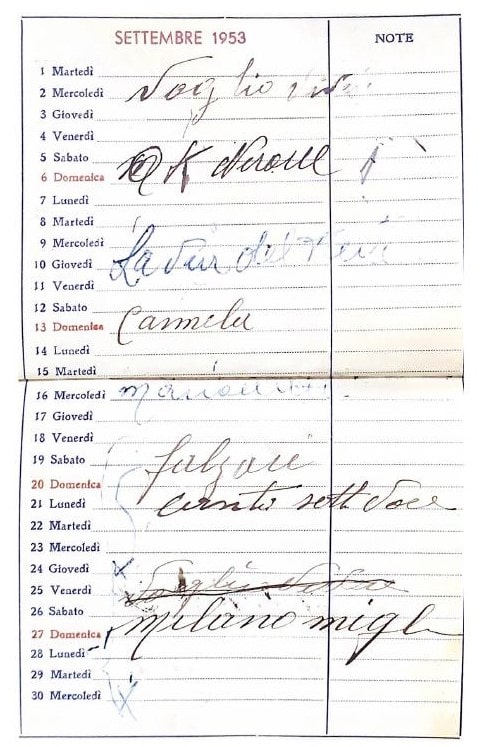 SETTEMBRE 1953 NOTE
1 Martedì
2 Mercoledì Voglio
3 Giovedì
4 Venerdì
5 Sabato
6 Domenica OK Nerone
7 Lunedì
8 Martedì
9 Mercoledì
10 Giovedì La
11 Venerdì
12 Sabato
13 Domenica Carmela
14 Lunedì
15 Martedì
16 Mercoledì
17 Giovedì
18 Venerdì
19 Sabato
20 Domenica
21 Lunedì
22 Martedì
23 Mercoledì
24 Giovedì
25 Venerdì
26 Sabato
27 Domenica milano migl
28 Lunedì
29 Martedì
30 Mercoledì